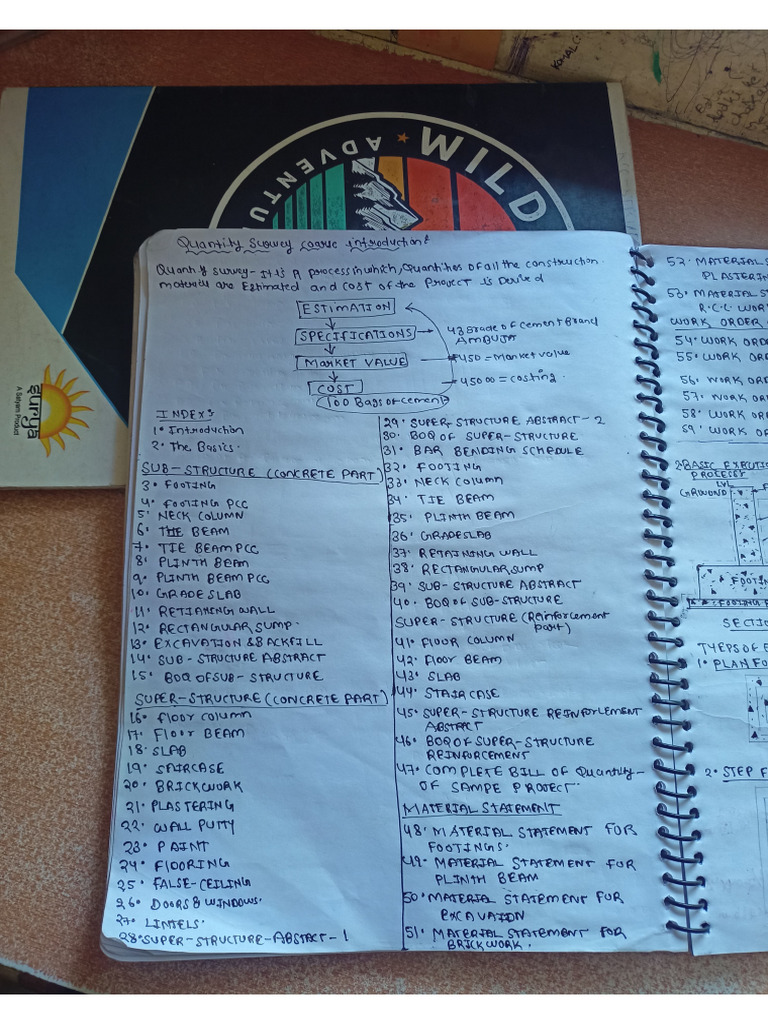 KOMAL
WILD
ADVENTU
surya
A Satyam Product
Quantity survey course introduction:
Quantity survey- It is A process in which, Quantities of all the construction
materials are Estimated and cost of the Project is Derived
ESTIMATION
SPECIFICATIONS → 43 Grade of cement Brand
AMBUJA
MARKET VALUE → ₹450 = Market value
COST → 45000 = costing.
100 Bags of cement
INDEX:
1. Introduction
2. The Basics.
SUB-STRUCTURE (CONCRETE PART)
3. FOOTING
4. FOOTING PCC
5. NECK COLUMN
6. THE BEAM
7. TIE BEAM PCC
8. PLINTH BEAM
9. PLINTH BEAM PCC
10. GRADESLAB
11. RETIANING WALL
12. RECTANGULAR SUMP.
13. EXCAVATION & BACKFILL
14. SUB-STRUCTURE ABSTRACT
15. BOQ OF SUB-STRUCTURE
SUPER-STRUCTURE (CONCRETE PART)
16. Floor column
17. Floor BEAM
18. SLAB
19. SAIRCASE
20. BRICKWORK
21. PLASTERING
22. WALL PUTTY
23. PAINT
24. FLOORING
25. FALSE-CEILING
26. DOORS & WINDOWS.
27. LINTELS.
28. SUPER-STRUCTURE-ABSTACT-1
29. SUPER-STRUCTURE ABSTRACT-2
30. BOQ OF SUPER-STRUCTURE
31. BAR BENDING SCHEDULE
32. FOOTING
33. NECK COLUMN
34. TIE BEAM
35. PLINTH BEAM
36. GRADESLAB
37. RETAINING WALL
38. RECTANGULAR SUMP
39. SUB-STRUCTURE ABSTRACT
40. BOQ OF SUB-STRUCTURE
SUPER-STRUCTURE (Reinforcement
part)
41. FLOOR COLUMN
42. Floor BEAM
43. SLAB
44. STAIRCASE
45. SUPER-STRUCTURE REINFORLEMENT
ABSTRACT
46. BOQ OF SUPER-STRUCTURE
REINFORCEMENT
47. COMPLETE BILL OF Quantity-
OF SAMPE PROJECT.
MATERIAL STATEMENT
48. MATERIAL STATEMENT FOR
FOOTINGS.
49. MATERIAL STATEMENT FOR
PLINTH BEAM
50. MATERIAL STATEMENT FOR
EXCAVATION
51. MATERIAL STATEMENT FOR
BRICKWORK.
52. MATERIAL S
PLASTERIN
53. MATERIAL ST
R.C.C WOR
WORK ORDER
54. WORK ORD
55. WORK ORD
56. WORK ORD
57. WORK ORD
58. WORK ORD
59. WORK ORD
2. BASIC EXECUTI
PROCESS
LVL
GROWOND
FOOTIN
FOOTING P
SECTIO
TYEPS OF F
1. PLAN FO
2. STEP F